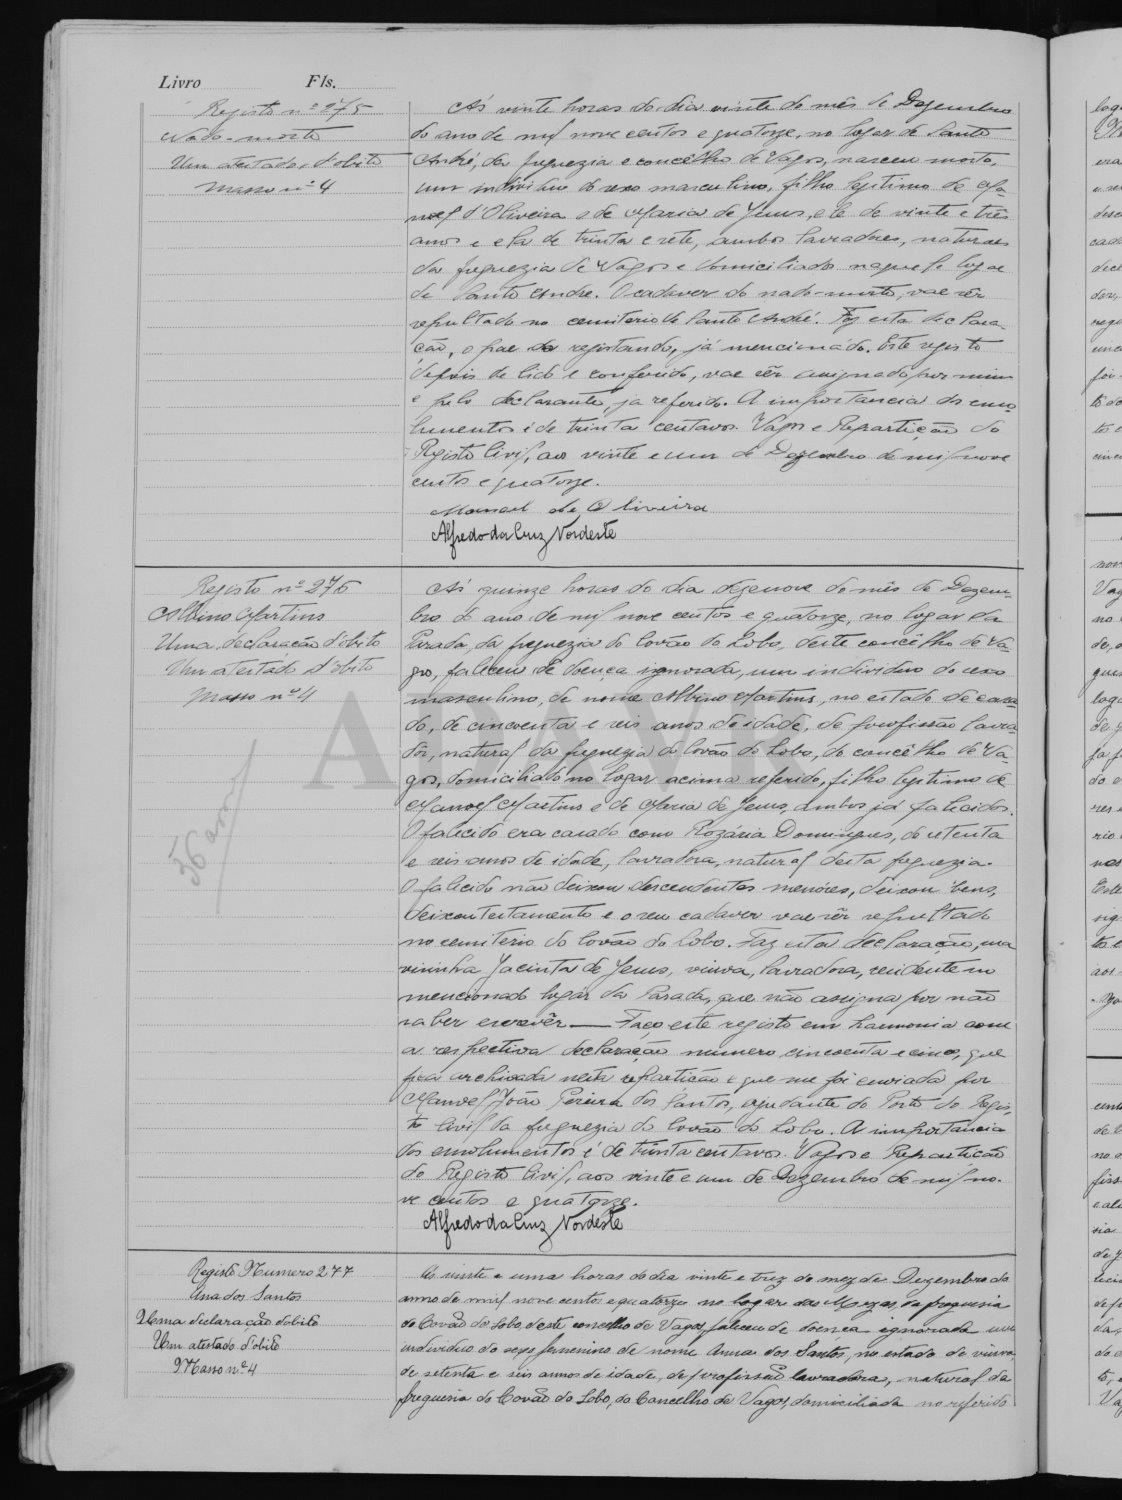 Livro Fls.
Registo nº 275
Nado-morto
Um atestado d'obito
Masso nº 4
Ás vinte horas do dia vinte do mês de Dezembro
do ano de mil nove centos e quatorze, no logar de Santo
André, da freguezia e concêlho de Vagos, nasceu morto,
um individuo do sexo masculino, filho legitimo de Ma-
noel d'Oliveira e de Maria de Jesus, ele de vinte e três
anos e ela de trinta e sete, ambos lavradores, naturaes
da freguezia de Vagos e domiciliados naquele logar
de Santo André. O cadaver do nado-morto, vae sêr
sepultado no cemiterio de Santo André. Fez esta declara-
ção, o pae do registando, já mencionado. Este registo
depois de lido e conferido, vae sêr assignado por mim
e pelo declarante, ja referido. A importancia dos emo-
lumentos é de trinta centavos. Vagos e Repartição do
Registo Civil, aos vinte e um de Dezembro de mil nove
centos e quatorze.
Manoel de Oliveira
Alfredo da Cruz Nordeste
Registo nº 276
Albino Martins
Uma declaração d'obito
Um atestado d'obito
Masso nº 4
56 anos
Ás quinze horas do dia dezenove do mês de Dezem-
bro do ano de mil nove centos e quatorze, no logar da
Parada, da freguezia do Covão do Lobo, deste concêlho de Va-
gos, faleceu de doença ignorada, um individuo do sexo
masculino, de nome Albino Martins, no estado de casa-
do, de cincoenta e seis anos de idade, de profissão lavra-
dôr, natural da freguezia do Covão do Lobo, do concêlho de Va-
gos, domiciliado no logar acima referido, filho legitimo de
Manoel Martins e de Maria de Jesus, ambos já falecidos.
O falecido era casado com Rozária Domingues, de setenta
e seis anos de idade, lavradora, natural desta freguezia.
O falecido não deixou descendentes menóres, deixou bens,
deixou testamento e o seu cadaver vae sêr sepultado
no cemiterio do Covão do Lobo. Faz esta declaração, sua
visinha Jacinta de Jesus, viuva, lavradora, residente no
mencionado logár da Parada, que não assigna por não
saber escrevêr — Faço este registo em harmonia com
a respectiva declaração numero cincoenta e cinco, que
fica archivada nesta repartição e que me foi enviada por
Manoel João Pereira dos Santos, ajudante do Posto do Regis-
to Civil da freguezia do Covão do Lobo. A importancia
dos emolumentos é de trinta centavos. Vagos e Repartição
do Registo Civil, aos vinte e um de Dezembro de mil no-
ve centos e quatorze.
Alfredo da Cruz Nordeste
AADAVR
Registo Numero 277
Ana dos Santos
Uma declaração d'obito
Um atestado d'obito
Masso nº 4
Ás vinte e uma horas do dia vinte e trez do mez de Dezembro do
anno de mil nove centos e quatorze no logar das Mezas, da freguesia
do Covão do Lobo, deste concelho de Vagos, faleceu de doença ignorada um
individuo do sexo femenino de nome Anna dos Santos, no estado de viuva,
de setenta e seis annos de idade, de profissão lavradora, natural da
freguesia do Covão do Lobo, do Concelho de Vagos, domiciliada no referido